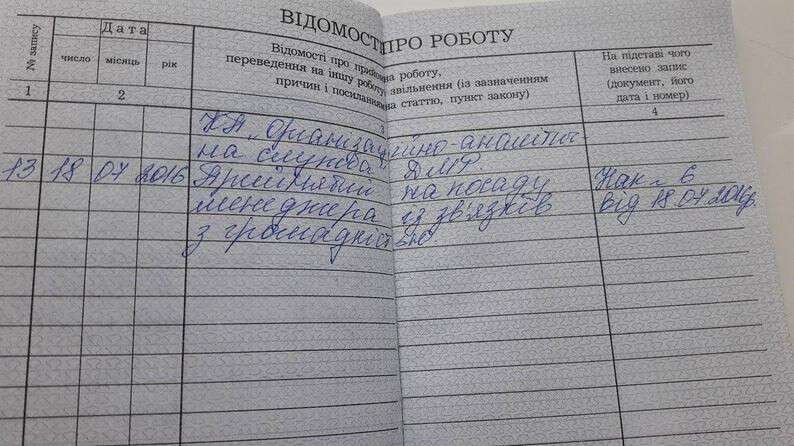 ВІДОМОСТІ ПРО РОБОТУ
№ запису
Дата
число місяць рік
Відомості про прийом на роботу,
переведення на іншу роботу, звільнення (із зазначенням
причин і посиланням на статтю, пункт закону)
На підставі чого
внесено запис
(документ, його
дата і номер)
1 2 3 4
КП „Організаційно-аналітич
на служба" ДМР
13 18 07 2016 Прийнятий на посаду Нак. № 6
менеджера із зв'язків від 18.07.2016р.
з громадкістью.